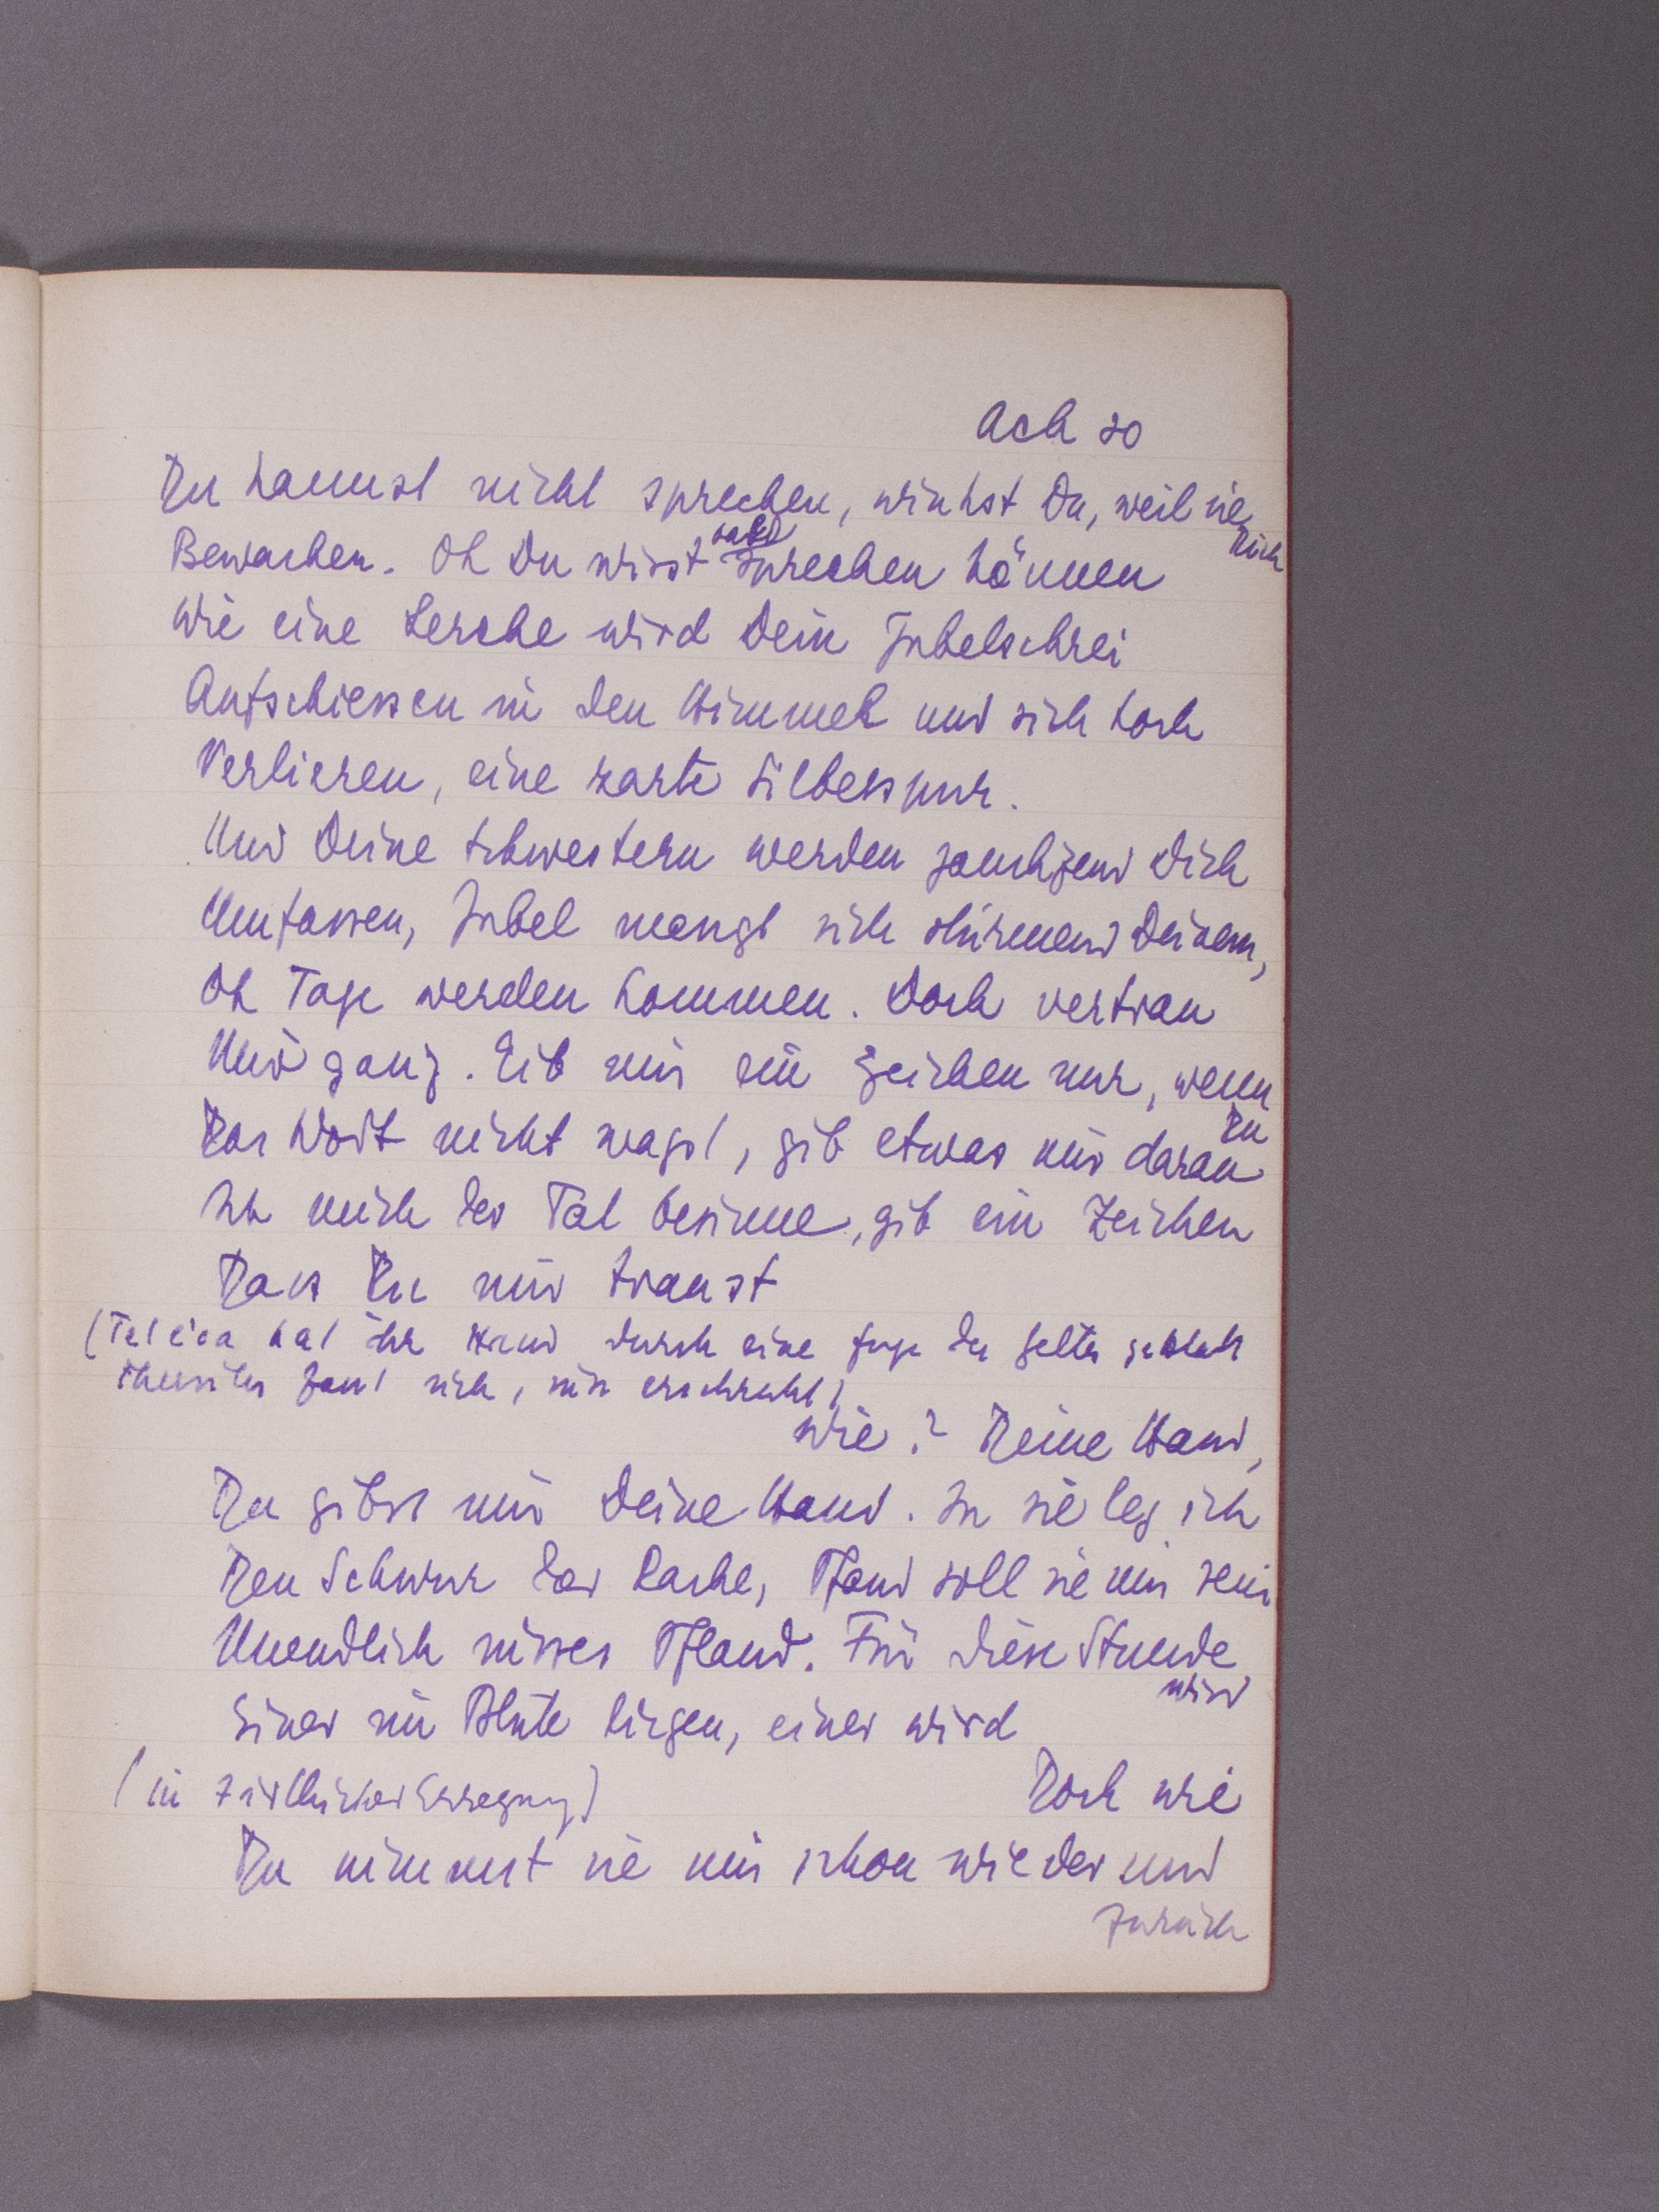 Ach so
Du kannst nicht sprechen, winkst Du, weil sie
Dich
Bewachen. Oh Du wirst bald sprechen können
Wie eine Lerche wird Dein Jubelschrei
Aufschiessen in den Himmel und sich hoch
Verlieren, eine zarte Silberspur.
Und Deine Schwestern werden jauchzend Dich
Umfassen, Jubel mengt sich stürmend Deinem,
Oh Tage werden kommen. Doch vertrau
Mir ganz. Gib mir ein Zeichen nur, wenn
Du
Das Wort nicht wagst, gib etwas mir daran
Ich mich der Tat besinne, gib ein Zeichen
Dass Du mir traust
hat ihr Hand durch eine Fuge des Zeltes gestreckt
sich, wie erschreckt)
Wie? Deine Hand,
Du gibst mir Deine Hand. In sie leg ich
Den Schwur der Rache, Pfand soll sie mir sein
Unendlich süsses Pfand. Für diese Stunde
wird
Einer im Blute liegen, einer wird
(in zärtlicher Erregung) Doch wie
Du nimmst sie mir schon wieder und
zurück